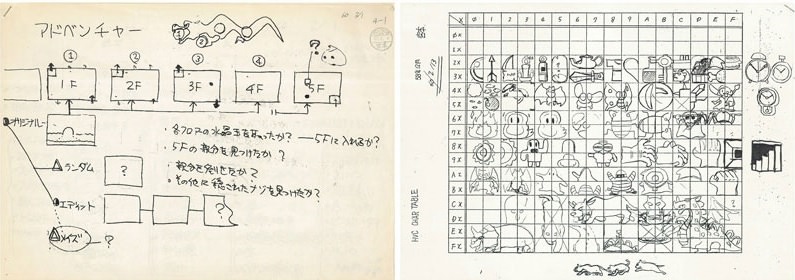 10 21
4-1
アドベンチャー
① ② ③ ④ ⑤
?
1F 2F 3F 4F 5F
オリジナル
・各フロアの水晶玉をなったか? — 5Fに入れるか?
・5Fの秘分を見つけたか?
ランダム
?
・その他に隠されたナゾを見つけたか?
エディット
?
メイズ — ?
HVC CHAR TABLE
X 0 1 2 3 4 5 6 7 8 9 A B C D E F
0X
1X
2X
3X
4X
5X
6X
7X
8X
9X
AX
BX
CX
DX
EX
FX